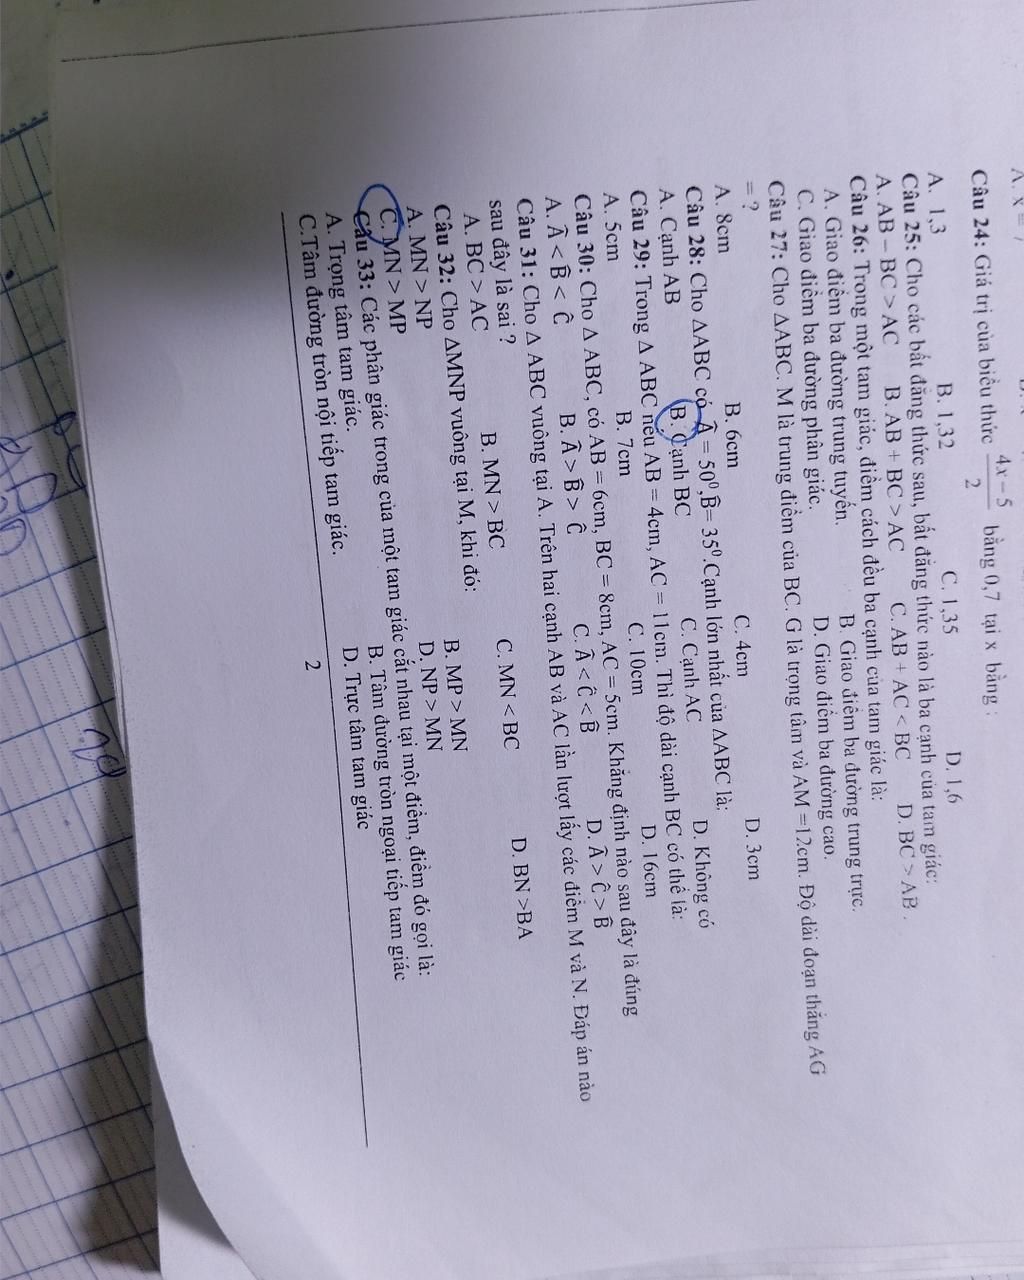 Câu 24: Giá trị của biểu thức (4x − 5)/2 bằng 0,7 tại x bằng :
A. 1,3 B. 1,32 C. 1,35 D. 1,6
Câu 25: Cho các bất đẳng thức sau, bất đẳng thức nào là ba cạnh của tam giác:
A. AB – BC > AC B. AB + BC > AC C. AB + AC < BC D. BC > AB .
Câu 26: Trong một tam giác, điểm cách đều ba cạnh của tam giác là:
A. Giao điểm ba đường trung tuyến. B. Giao điểm ba đường trung trực.
C. Giao điểm ba đường phân giác. D. Giao điểm ba đường cao.
Câu 27: Cho ΔABC. M là trung điểm của BC. G là trọng tâm và AM =12cm. Độ dài đoạn thẳng AG
= ?
A. 8cm B. 6cm C. 4cm D. 3cm
Câu 28: Cho ΔABC có Â = 50⁰,B̂= 35⁰.Cạnh lớn nhất của ΔABC là:
A. Cạnh AB B. Cạnh BC C. Cạnh AC D. Không có
Câu 29: Trong Δ ABC nếu AB = 4cm, AC = 11cm. Thì độ dài cạnh BC có thể là:
A. 5cm B. 7cm C. 10cm D. 16cm
Câu 30: Cho Δ ABC, có AB = 6cm, BC = 8cm, AC = 5cm. Khẳng định nào sau đây là đúng
A. Â < B̂ < Ĉ B. Â > B̂ > Ĉ C. Â < Ĉ < B̂ D. Â > Ĉ > B̂
Câu 31: Cho Δ ABC vuông tại A. Trên hai cạnh AB và AC lần lượt lấy các điểm M và N. Đáp án nào
sau đây là sai ?
A. BC > AC B. MN > BC C. MN < BC D. BN >BA
Câu 32: Cho ΔMNP vuông tại M, khi đó:
A. MN > NP B. MP > MN
C. MN > MP D. NP > MN
Câu 33: Các phân giác trong của một tam giác cắt nhau tại một điểm, điểm đó gọi là:
A. Trọng tâm tam giác. B. Tâm đường tròn ngoại tiếp tam giác
C.Tâm đường tròn nội tiếp tam giác. D. Trực tâm tam giác
2